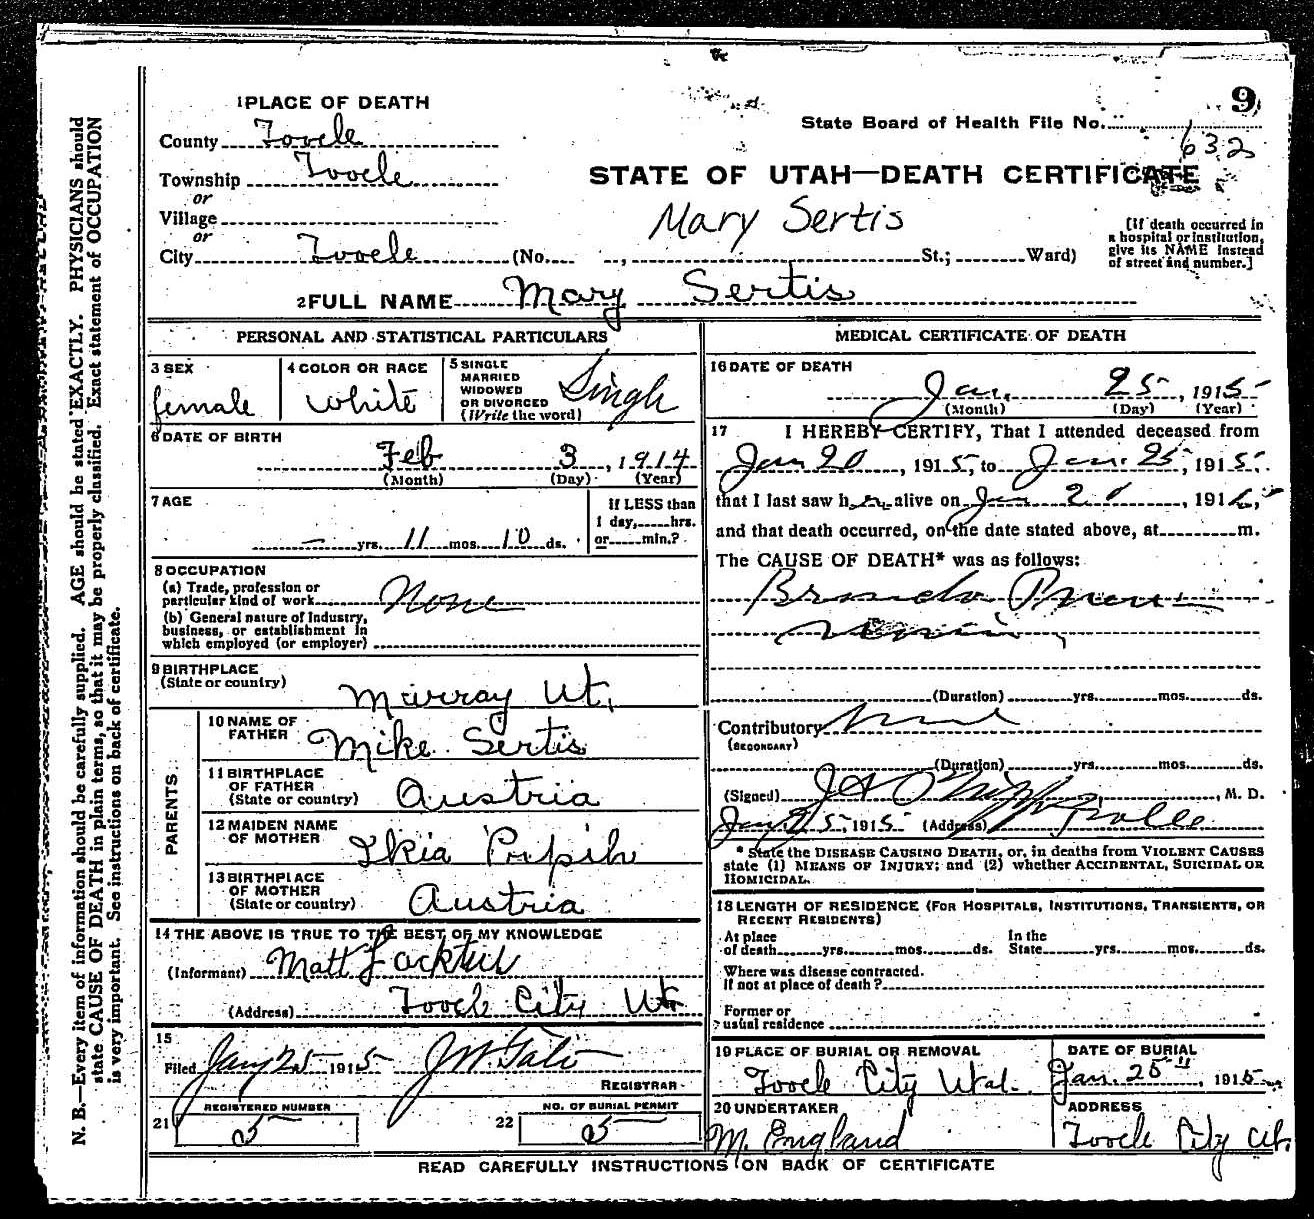 N. B.—Every item of information should be carefully supplied. AGE should be stated EXACTLY. PHYSICIANS should
state CAUSE OF DEATH in plain terms, so that it may be properly classified. Exact statement of OCCUPATION
is very important. See instructions on back of certificate.
9
1 PLACE OF DEATH
State Board of Health File No.
632
County Tooele
Township Tooele
or
Village
or
City Tooele (No. , St.; Ward)
STATE OF UTAH—DEATH CERTIFICATE
Mary Sertis
[If death occurred in
a hospital or institution,
give its NAME instead
of street and number.]
2 FULL NAME Mary Sertis
PERSONAL AND STATISTICAL PARTICULARS
3 SEX
female
4 COLOR OR RACE
White
5 SINGLE
MARRIED
WIDOWED
OR DIVORCED
(Write the word)
Single
6 DATE OF BIRTH
Feb 3, 1914
(Month) (Day) (Year)
7 AGE
— yrs. 11 mos. 10 ds.
If LESS than
1 day, hrs.
or min.?
8 OCCUPATION
(a) Trade, profession or
particular kind of work None
(b) General nature of Industry,
business, or establishment in
which employed (or employer)
9 BIRTHPLACE
(State or country)
Murray Ut.
PARENTS
10 NAME OF
FATHER
Mike Sertis
11 BIRTHPLACE
OF FATHER
(State or country)
Austria
12 MAIDEN NAME
OF MOTHER
13 BIRTHPLACE
OF MOTHER
(State or country)
Austria
14 THE ABOVE IS TRUE TO THE BEST OF MY KNOWLEDGE
(Informant) Matt
(Address) Tooele City Ut
15
Filed Jany 25 1915
REGISTRAR
REGISTERED NUMBER
21 5
NO. OF BURIAL PERMIT
22 5
MEDICAL CERTIFICATE OF DEATH
16 DATE OF DEATH
Jan. 25, 1915
(Month) (Day) (Year)
17 I HEREBY CERTIFY, That I attended deceased from
Jan 20, 1915, to Jan. 25, 1915.
that I last saw her alive on Jan , 191
and that death occurred, on the date stated above, at m.
The CAUSE OF DEATH* was as follows:
(Duration) yrs. mos. ds.
Contributory
(SECONDARY)
(Duration) yrs. mos. ds.
(Signed) , M. D.
Jan 25, 1915 (Address)
* State the DISEASE CAUSING DEATH, or, in deaths from VIOLENT CAUSES
state (1) MEANS OF INJURY; and (2) whether ACCIDENTAL, SUICIDAL OR
HOMICIDAL.
18 LENGTH OF RESIDENCE (FOR HOSPITALS, INSTITUTIONS, TRANSIENTS, OR
RECENT RESIDENTS)
At place
of death yrs. mos. ds.
In the
State yrs. mos. ds.
Where was disease contracted.
If not at place of death?
Former or
usual residence
19 PLACE OF BURIAL OR REMOVAL
Tooele City Utah.
DATE OF BURIAL
Jan. 25", 1915
20 UNDERTAKER
M. England
ADDRESS
Tooele City Ut.
READ CAREFULLY INSTRUCTIONS ON BACK OF CERTIFICATE